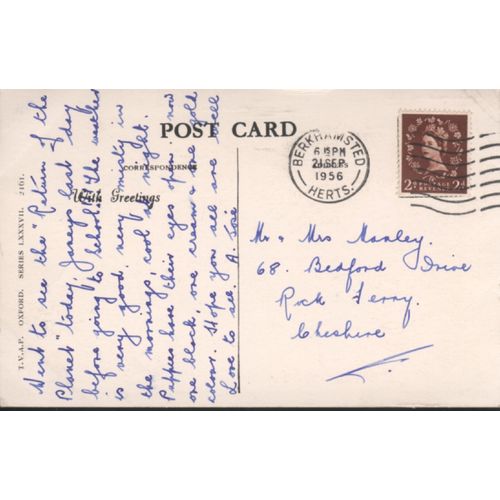 POST CARD
CORRESPONDENCE
With Greetings
T.V.A.P. OXFORD. SERIES LXXXVII. 2161.
Went to see the "Return of the
Planet" today, Janey's last day
before going to school. The weather
is very good, very misty in
the mornings, cool at night.
Puppies have their eyes open now
one black, one cream & one gold
colour. Hope you all are well
Love to all. A. Jose
BERKHAMSTED
6 15 PM
21 SEP
1956
HERTS.
POSTAGE
REVENUE
2D 2D
Mr & Mrs Manley.
68. Bedford Drive
Rock Ferry.
Cheshire